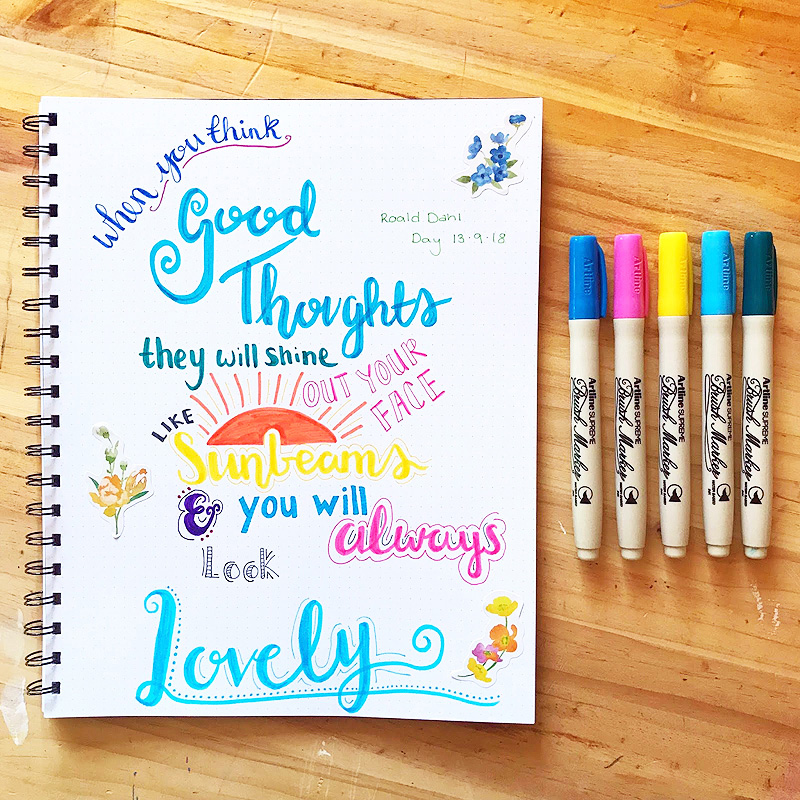 when you think
Good
Roald Dahl
Day 13.9.18
Thoughts
they will shine
OUT YOUR
FACE
LIKE
Sunbeams
& you will
always
Look
Lovely
Artline
Artline
Artline
Artline
Artline
Artline SUPREME
Brush Marker
Artline SUPREME
Brush Marker
Artline SUPREME
Brush Marker
Artline SUPREME
Brush Marker
Artline SUPREME
Brush Marker